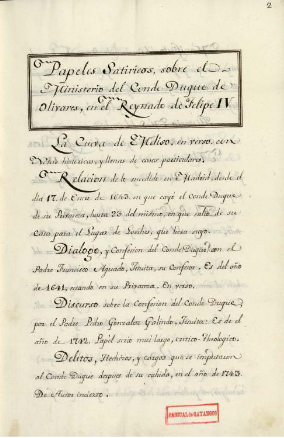 2
Papeles Satiricos, sobre el
Ministerio del Conde Duque de
Olivares, en el Reynado de Felipe IV
La Cueva de Meliso, en verso, con
Notas historicas, y llenas de casos particulares.
Relacion de lo sucedido en Madrid, desde el
dia 17 de Enero de 1643, en que cayó el Conde Duque
de su Privanza, hasta 23 del mismo, en que salió de su
Casa para el Lugar de Loeches, que hera suyo.
Dialogo, y Confesion del Conde Duque, con el
Padre Francisco Aguado, Jesuita, su Confesor. Es del año
de 1641, estando en su Privanza. En verso.
Discurso sobre la Confesion del Conde Duque,
por el Padre Pedro Gonzalez Galindo, Jesuita: Es de el
año de 1742. Papel serio muy largo, critico Theologico.
Delitos, Hechizos, y cargos que se imputaron
al Conde Duque despues de su caida, en el año de 1743.
De Autor incierto.
PASCUAL de GAYANGOS